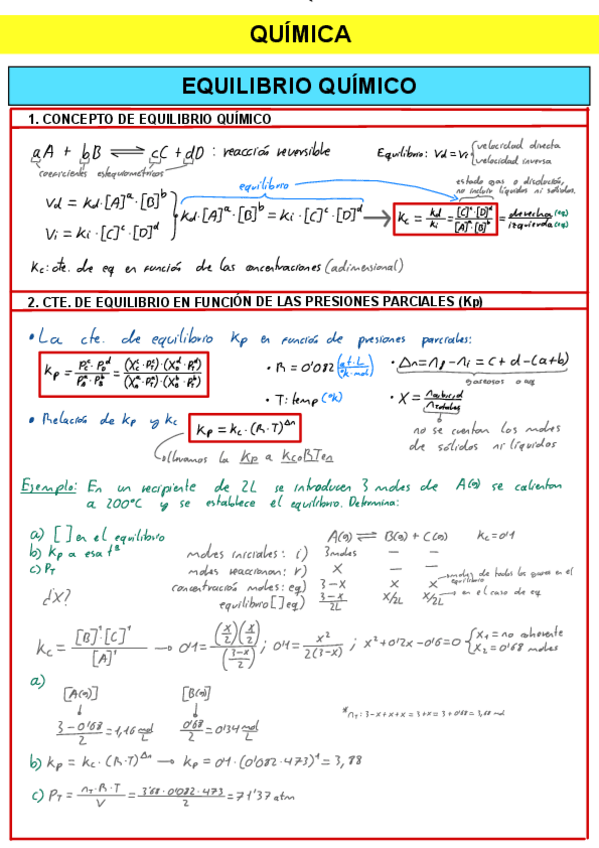 QUÍMICA
EQUILIBRIO QUÍMICO
1. CONCEPTO DE EQUILIBRIO QUÍMICO
aA + bB ⇌ cC + dD : reacción reversible
coeficientes estequiométricos
Equilibrio: Vd = Vi { velocidad directa
velocidad inversa
estado gas o disolución,
no incluir líquidos ni sólidos.
equilibrio
Vd = Kd·[A]ᵃ·[B]ᵇ
Vi = Ki·[C]ᶜ·[D]ᵈ
Kd·[A]ᵃ·[B]ᵇ = Ki·[C]ᶜ·[D]ᵈ → Kc = Kd/Ki = [C]ᶜ·[D]ᵈ/[A]ᵃ·[B]ᵇ = derecha (eq)/izquierda (eq)
Kc: cte. de eq en función de las concentraciones (adimensional)
2. CTE. DE EQUILIBRIO EN FUNCIÓN DE LAS PRESIONES PARCIALES (Kp)
• La cte. de equilibrio Kp en función de presiones parciales:
Kp = Pcᶜ·PDᵈ/PAᵃ·PBᵇ = (Xcᶜ·PTᶜ)·(XDᵈ·PTᵈ)/(XAᵃ·PTᵃ)·(XBᵇ·PTᵇ)
• R = 0'082 (at·L/ºk·mol)
• Δn = nf - ni = c + d - (a+b)
gaseosos o aq
• T: temp (ºk)
• X = nparcial/ntotales
no se cuentan los moles
de sólidos ni líquidos
• Relación de Kp y Kc
Kp = Kc·(R·T)^Δn
llevamos la Kp a KcoRTen
Ejemplo: En un recipiente de 2L se introducen 3 moles de A(g) se calientan
a 200ºC y se establece el equilibrio. Determina:
a) [ ] en el equilibrio
b) Kp a esa tª
c) PT
¿X?
A(g) ⇌ B(g) + C(g) Kc = 0'1
moles iniciales: i) 3moles – –
moles reaccionan: r) X – –
concentración moles: eq) 3-X X X → moles de todos los gases en el
equilibrio
equilibrio [ ] eq) 3-X/2L X/2L X/2L → en el caso de eq
Kc = [B]¹·[C]¹/[A]¹ → 0'1 = (X/2)(X/2)/(3-X/2) ; 0'1 = X²/2(3-X) ; X² + 0'2X - 0'6 = 0 { X₁ = no coherente
X₂ = 0'68 moles
a)
[A(g)] [B(g)]
3-0'68/2 = 1,16 mol/L 0'68/2 = 0'34 mol/L
*nT: 3-X+X+X = 3+X = 3+0'68 = 3,68 mol
b) Kp = Kc·(R·T)^Δn → Kp = 0'1·(0'082·473)¹ = 3,88
c) PT = nT·R·T/V = 3'68·0'082·473/2 = 71'37 atm